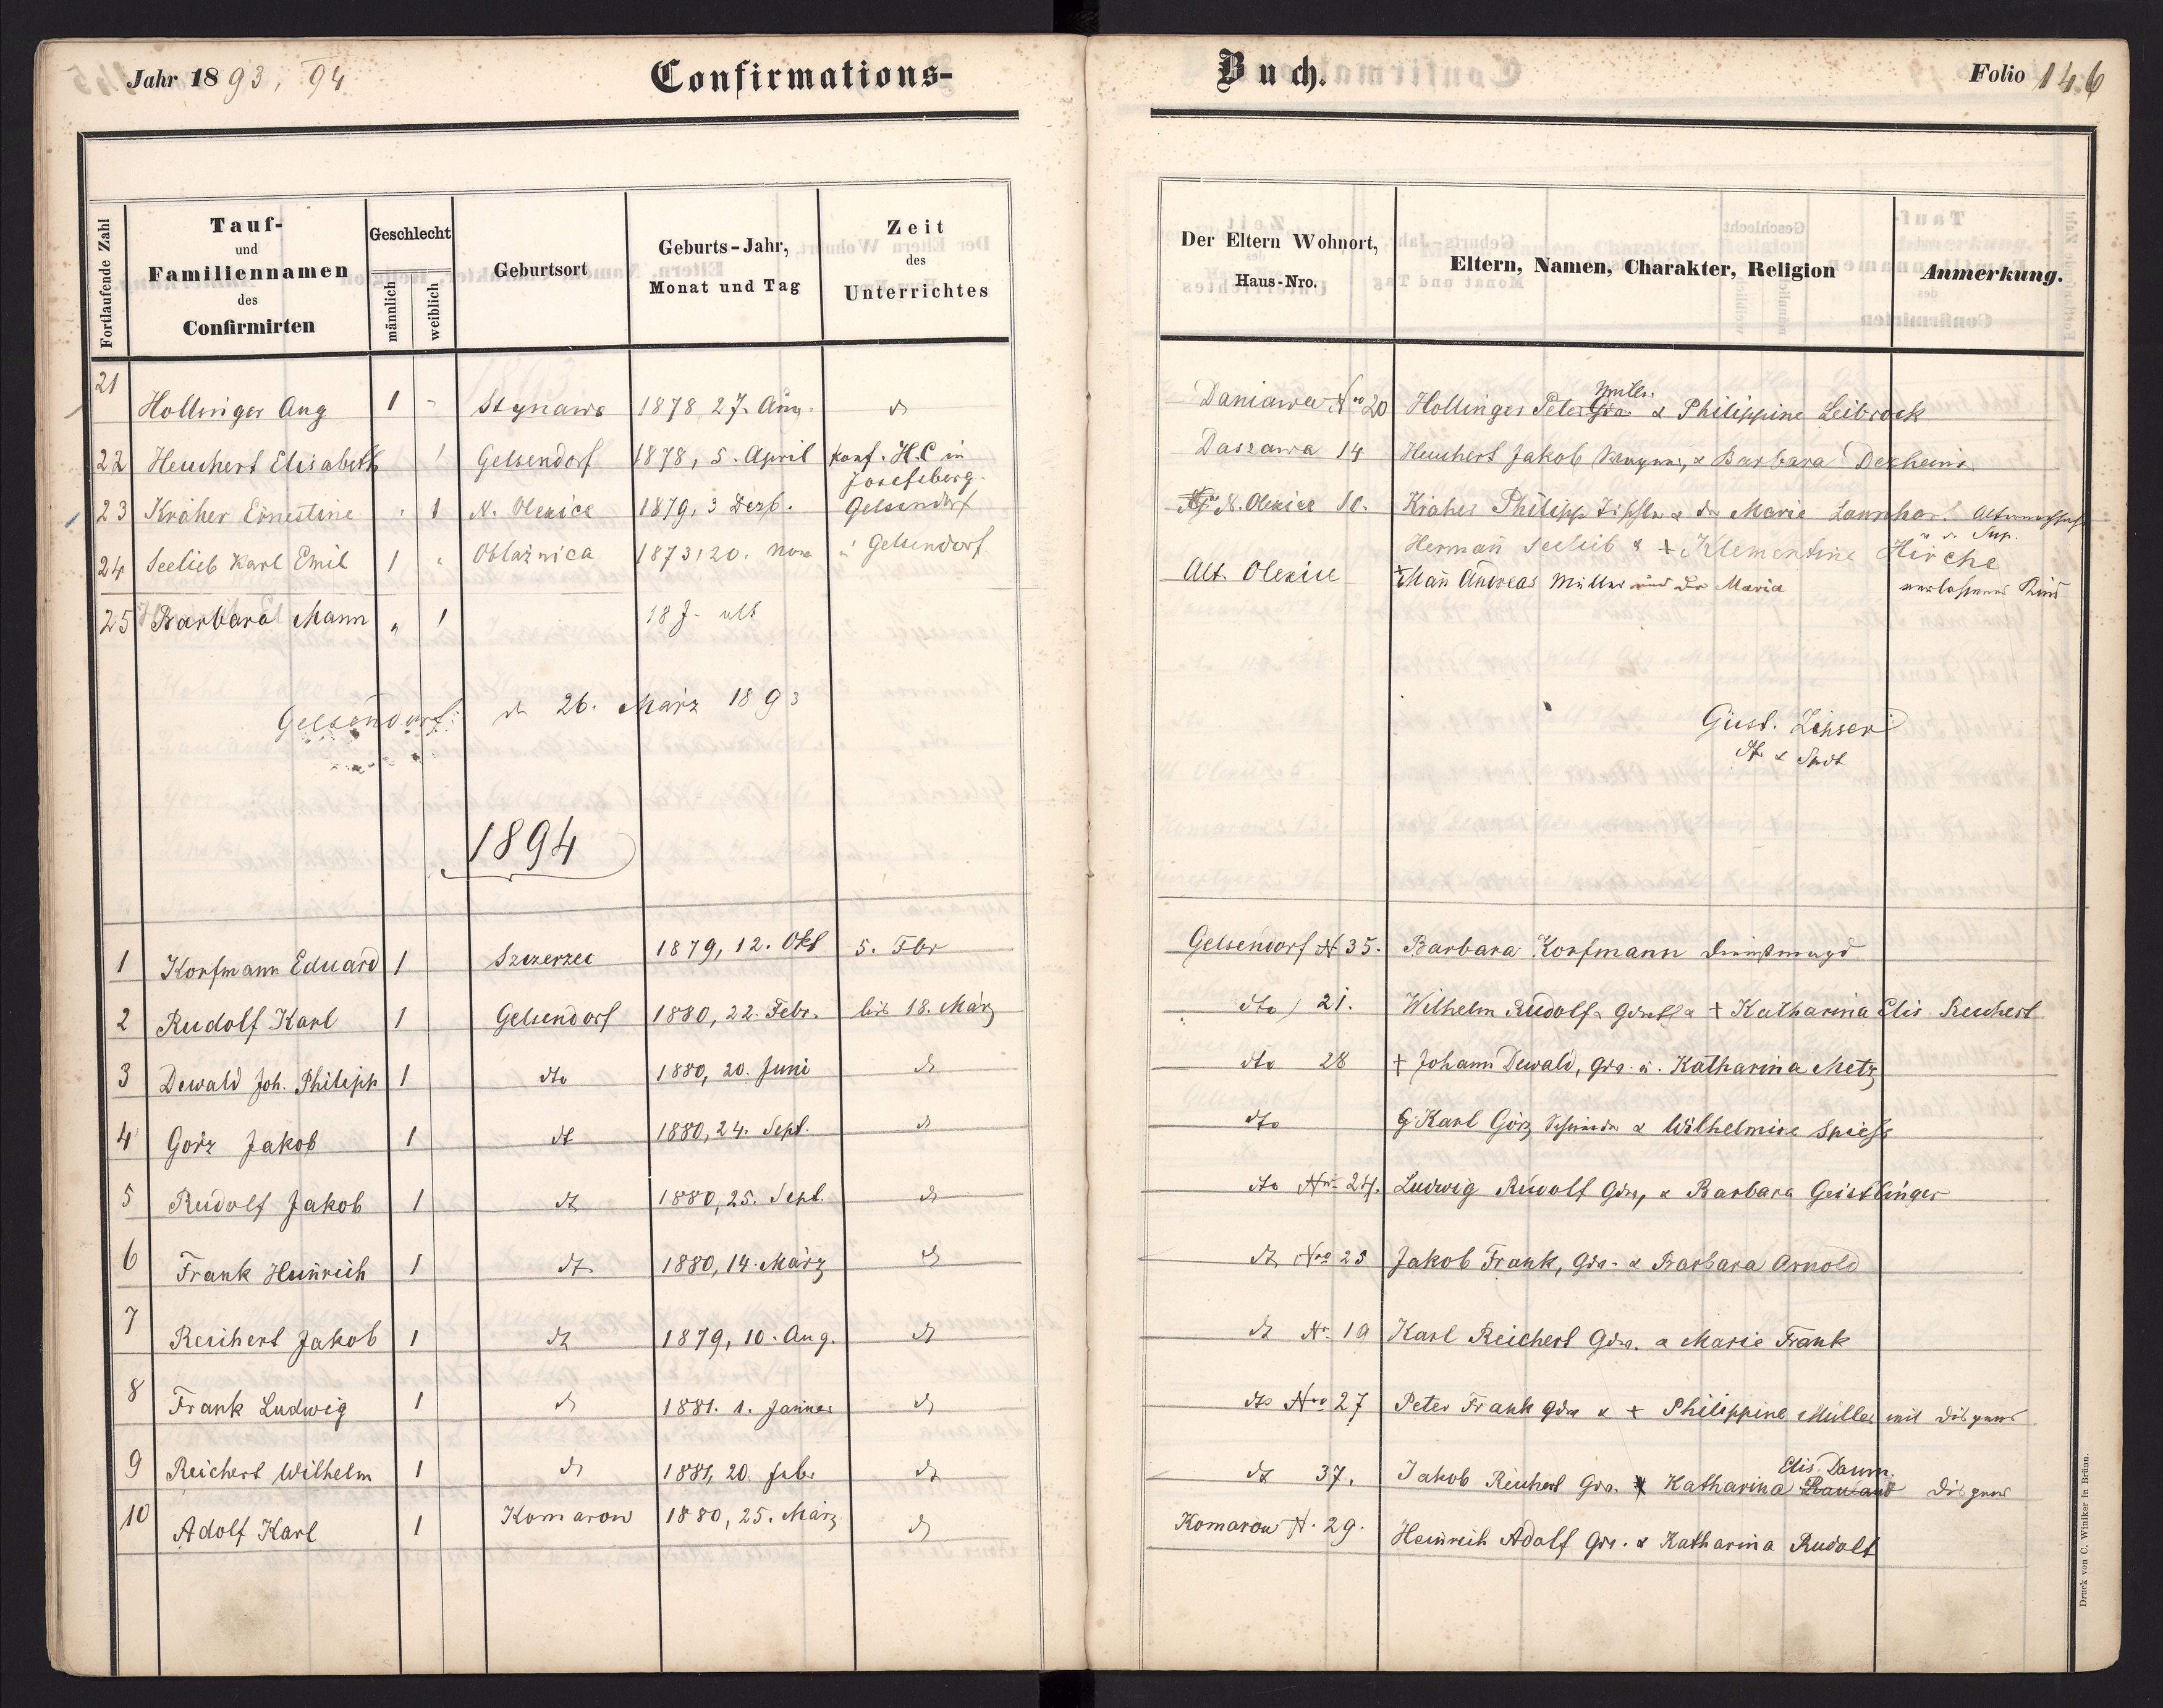 Jahr 1893, 94 Confirmations- Buch. Folio 146
Fortlaufende Zahl
Tauf- und Familiennamen des Confirmirten
Geschlecht
männlich
weiblich
Geburtsort
Geburts-Jahr, Monat und Tag
Zeit des Unterrichtes
Der Eltern Wohnort, Haus-Nro.
Eltern, Namen, Charakter, Religion
Anmerkung.
21 Hollinger Aug 1 - Stynawa 1878 27. Aug. Daniawa Nro 20 Hollinger Peter & Philippine Leibrock
22 Heuchert Elisabeth 1 Gelsendorf 1878, 5. April konf. H.C in Josefsberg. Daszawa 14 Heuchert Jakob & Barbara Dexheim
23 Kraher Ernestine " 1 N. Olexice 1879, 3 Dezb. Gelsendorf N. Olexice 10. Kraher Philipp Tischler & Marie
24 Seelieb Karl Emil 1 " Oblaznica 1873, 20. Gelsendorf Hermann Seelieb & + Klementine Hirche
25 Barbara Mann " 1 18 J. alt Alt Olexice Mann Andreas Müller und Maria verlassenes Kind
Gelsendorf: 26. März 1893
Gust.
1894
1 Korfmann Eduard 1 Szczerzec 1879, 12. Okt 5. Fbr Gelsendorf N 35. Barbara Korfmann Dienstmagd
2 Rudolf Karl 1 Gelsendorf 1880, 22. Febr. bis 18. März dto 21. Wilhelm Rudolf & + Katharina Elis Reichert
3 Dewald Joh. Philipp 1 dto 1880, 20. Juni dto 28 + Johann Dewald, Gdr. u. Katharina Metz
4 Görz Jakob 1 dt 1880, 24. Sept. dto Karl Görz & Wilhelmine Spiess
5 Rudolf Jakob 1 dt 1880, 25. Sept. dto Nr 24. Ludwig Rudolf Gdr, & Barbara Geistlinger
6 Frank Heinrich 1 dt 1880, 14. März dt Nro 25 Jakob Frank, Gdr. & Barbara Arnold
7 Reichert Jakob 1 dt 1879, 10. Aug. dt dt N 19 Karl Reichert Gdr. & Marie Frank
8 Frank Ludwig 1 1881. 1. Jänner dto Nro 27 Peter Frank Gdr & + Philippine Müller mit
9 Reichert Wilhelm 1 1881, 20. Febr dt 37. Jakob Reichert Gdr. Katharina Elis. Daum
10 Adolf Karl 1 Komarow 1880, 25. März Komarow N. 29. Heinrich Adolf Gdr. & Katharina Rudolf
Druck von C. Winiker in Brünn.